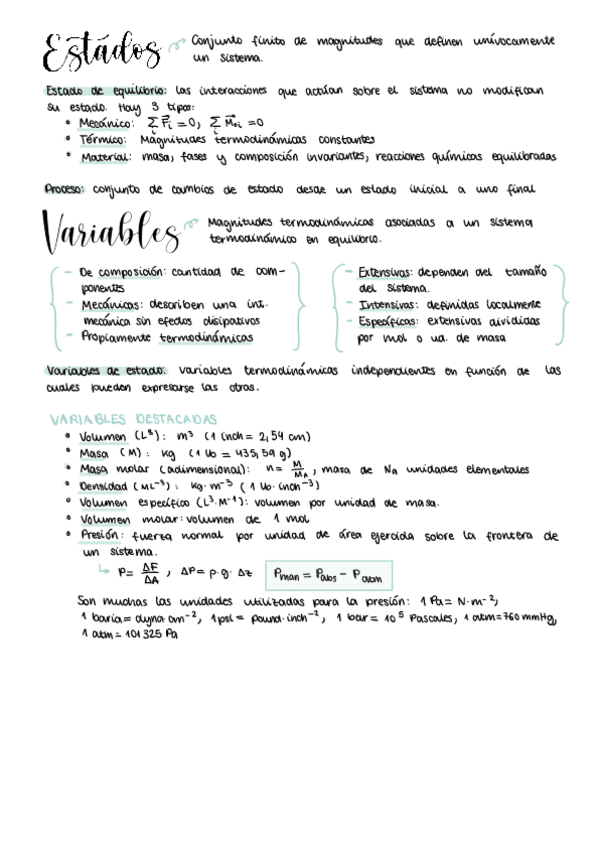 Estados Conjunto finito de magnitudes que definen unívocamente
un sistema.
Estado de equilibrio: las interacciones que actúan sobre el sistema no modifican
su estado. Hay 3 tipos:
• Mecánico: Σ F⃗i = 0, Σ M⃗oi = 0
• Térmico: Magnitudes termodinámicas constantes
• Material: masa, fases y composición invariantes, reacciones químicas equilibradas
Proceso: conjunto de cambios de estado desde un estado inicial a uno final
Variables Magnitudes termodinámicas asociadas a un sistema
termodinámico en equilibrio.
- De composición: cantidad de com-
ponentes
- Mecánicas: describen una int.
mecánica sin efectos disipativos
- Propiamente termodinámicas
- Extensivas: dependen del tamaño
del sistema.
- Intensivas: definidas localmente
- Específicas: extensivas divididas
por mol o ud. de masa
Variables de estado: variables termodinámicas independientes en función de las
cuales pueden expresarse las otras.
VARIABLES DESTACADAS
• Volumen (L³): m³ (1 inch = 2,54 cm)
• Masa (M): kg (1 lb = 435,59 g)
• Masa molar (adimensional): n = M/MA, masa de NA unidades elementales
• Densidad (ML⁻³): kg·m⁻³ (1 lb·inch⁻³)
• Volumen específico (L³·M⁻¹): volumen por unidad de masa.
• Volumen molar: volumen de 1 mol
• Presión: fuerza normal por unidad de área ejercida sobre la frontera de
un sistema.
↳ P = ΔF/ΔA, ΔP = ρ·g·Δz Pman = Pabs - Patm
Son muchas las unidades utilizadas para la presión: 1 Pa = N·m⁻²,
1 baria = dyna·cm⁻², 1 psi = pound·inch⁻², 1 bar = 10⁵ Pascales, 1 atm = 760 mmHg,
1 atm = 101325 Pa